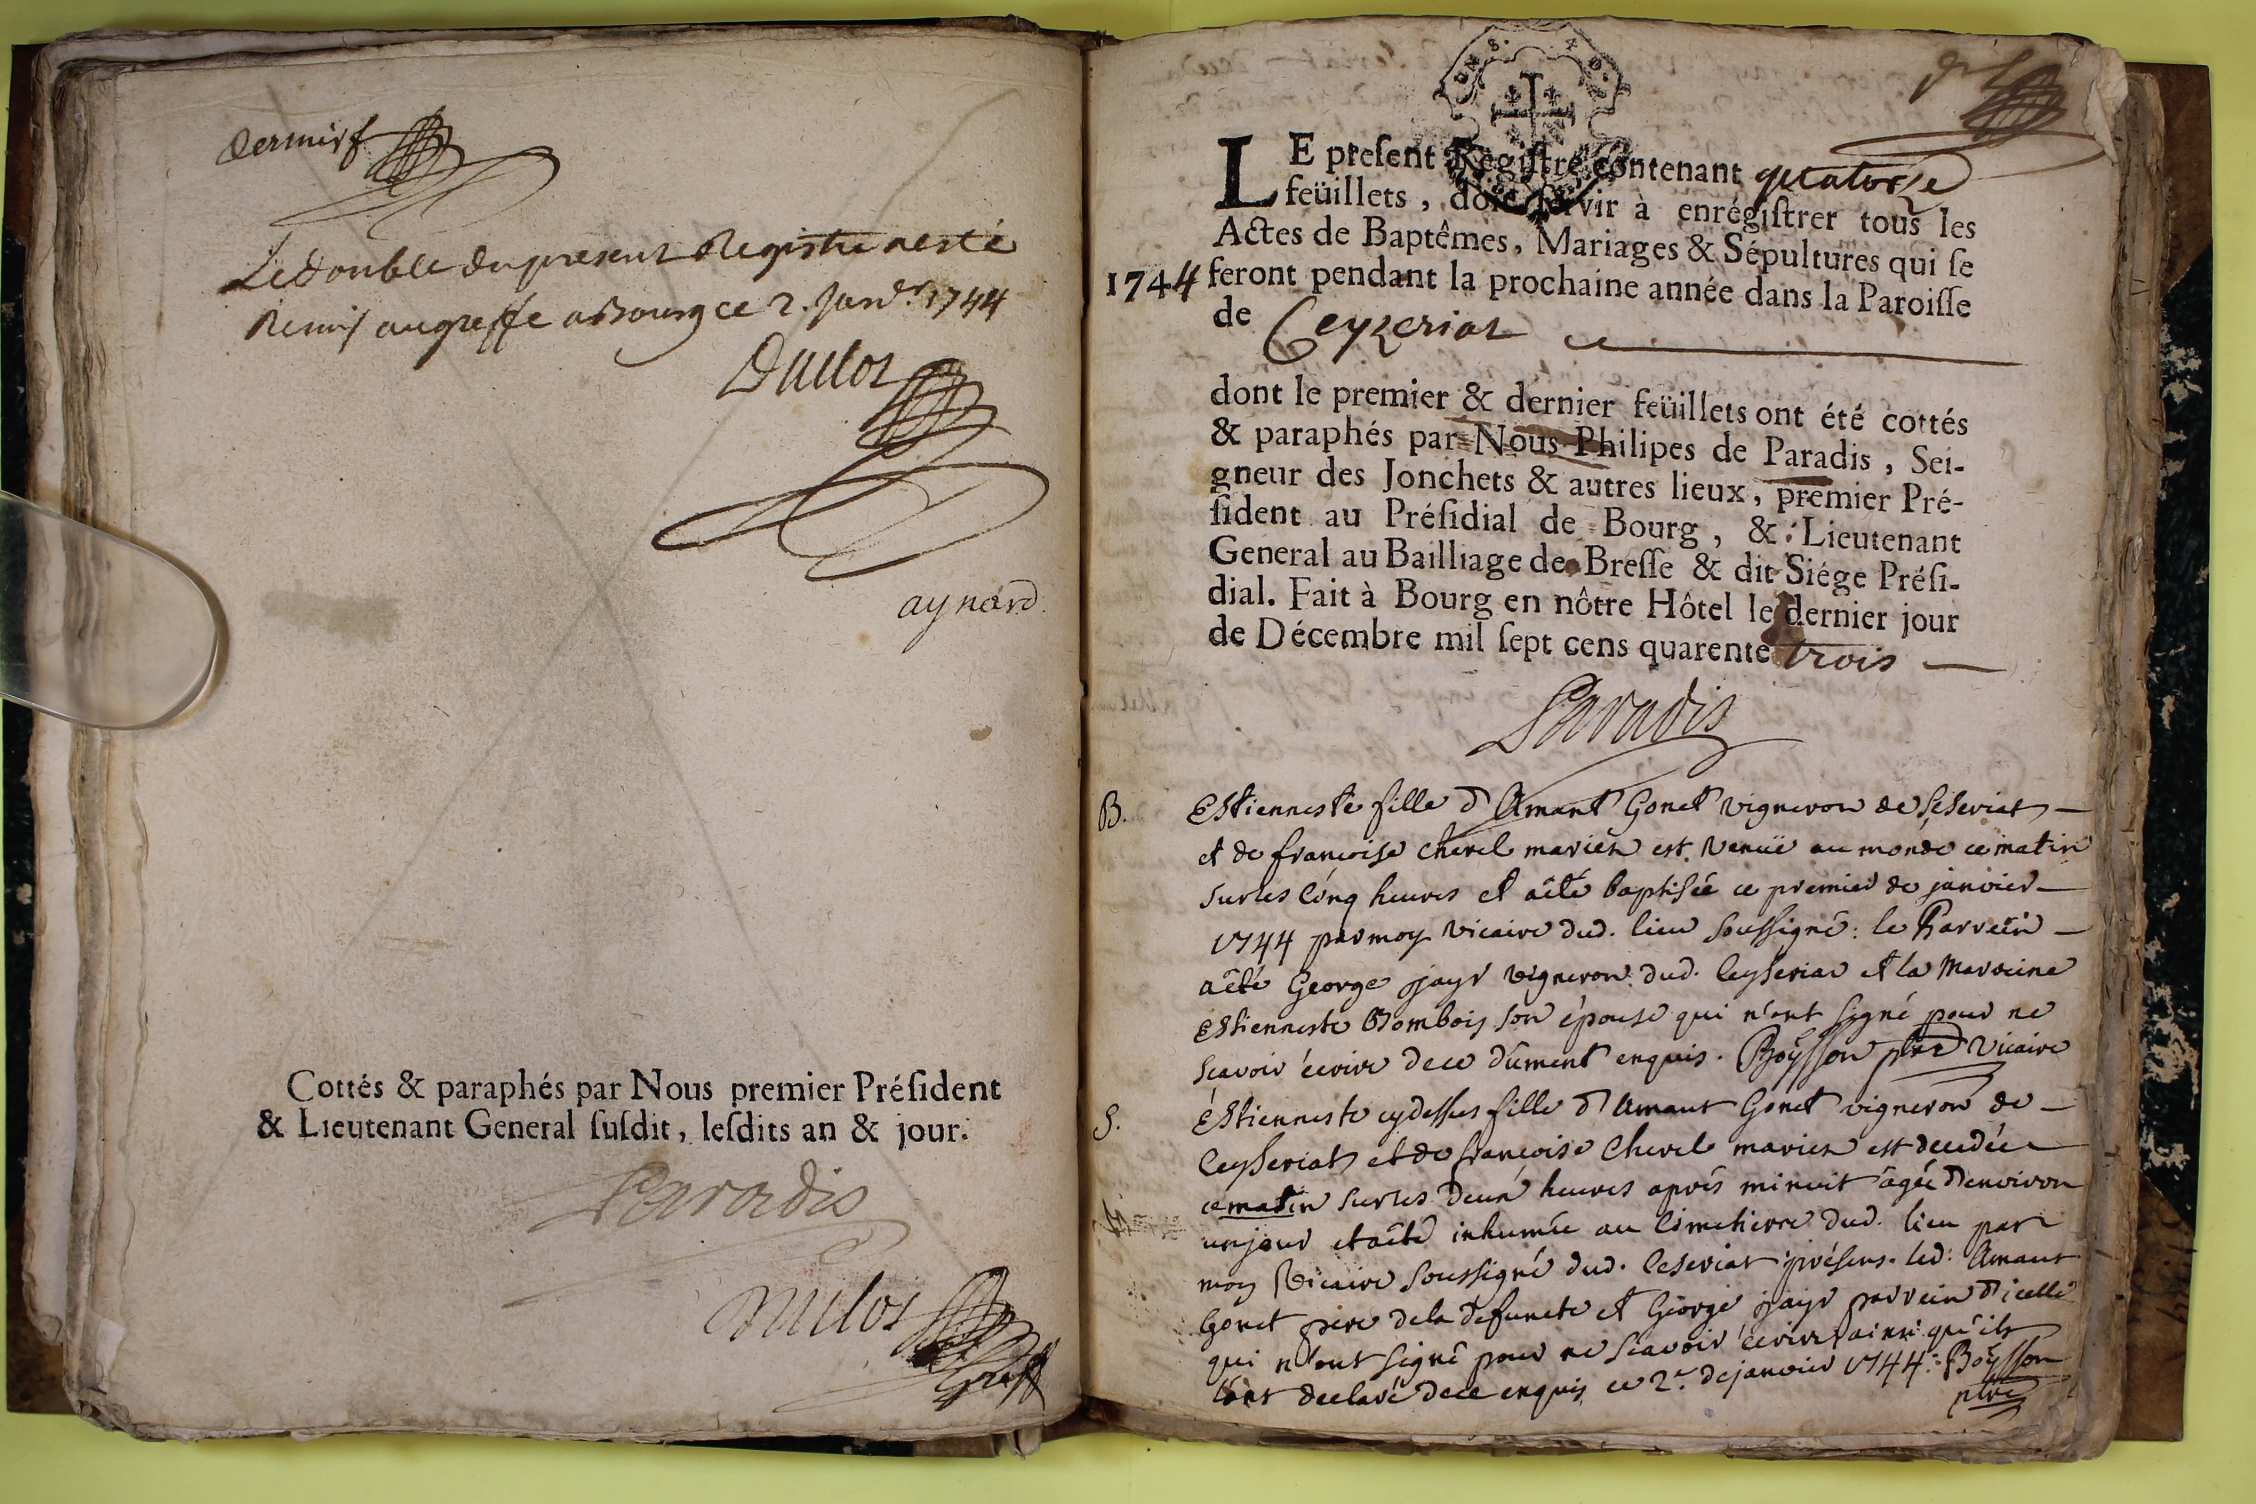 dernier f
Le double du present Registre a esté
Remis au greffe a Bourg ce 2. Janv.r 1744
Duclos
aynard
Cottés & paraphés par Nous premier Préſident
& Lieutenant General ſuſdit, leſdits an & jour.
Paradis
Duclos
LE preſent Regiſtre contenant quatorze
feüillets, doit ſervir à enrégiſtrer tous les
Actes de Baptêmes, Mariages & Sépultures qui ſe
1744 feront pendant la prochaine année dans la Paroiſſe
de Ceyzeriat
dont le premier & dernier feüillets ont été cottés
& paraphés par Nous Philipes de Paradis, Sei-
gneur des Jonchets & autres lieux, premier Pré-
ſident au Préſidial de Bourg, & Lieutenant
General au Bailliage de Breſſe & dit Siége Préſi-
dial. Fait à Bourg en nôtre Hôtel le dernier jour
de Décembre mil ſept cens quarente trois
Paradis
B. Estienneste fille d'Amant Gonet vigneron de Seseriat
et de francoise Chevel mariés est venüe au monde ce matin
sur les cinq heures et a été baptisée ce premier de janvier
1744 par moy vicaire dud. lieu soussigné: le Parrein
a été George jayr vigneron dud. Ceyseriat et la Marreine
Estienneste Bombois son épouse qui n'ont signé pour ne
scavoir écrire de ce dûment enquis. Boÿsson ptre Vicaire
S. Estienneste cy dessus fille d'Amant Gonet vigneron de
Ceyseriat et de francoise Chevel mariés est decedée
ce matin sur les deux heures aprés minuit âgée d'environ
un jour et a été inhumée au Cimetierre dud. lieu par
moy Vicaire soussigné dud. Ceseriat présens. led. Amant
Gonet pere de la defuncte et George jayr parrein d'icelle
qui n'ont signé pour ne scavoir écrire ainsi qu'ils
l'ont declaré de ce enquis ce 2.e de janvier 1744. Boÿsson
ptre